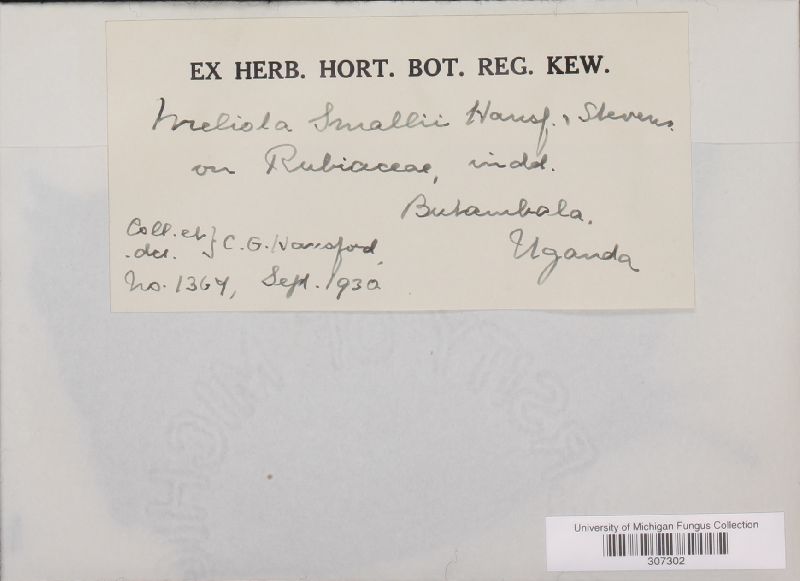 EX HERB. HORT. BOT. REG. KEW.
Meliola Smallii Hansf. & Stevens.
on Rubiaceae, indd.
Butambala.
Uganda
Coll. et } C.G. Hansford,
.det.
No. 1367, Sept. 1930
University of Michigan Fungus Collection
307302